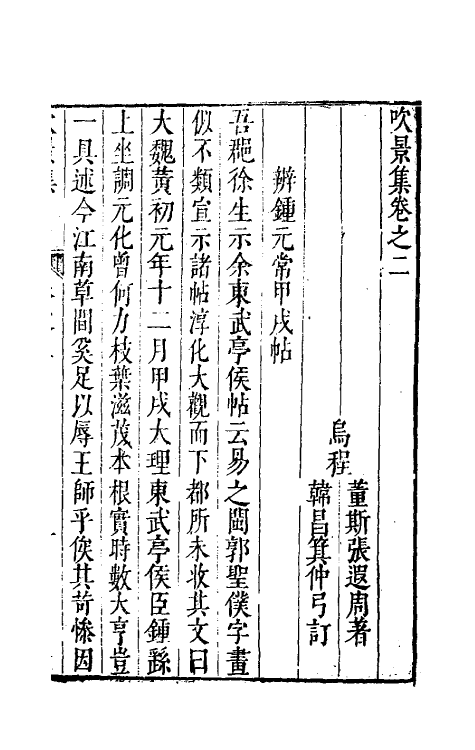 吹景集卷之二
烏程
董斯張遐周著
韓昌箕仲弓訂
辨鍾元常甲戌帖
吾𨞬徐生示余東武亭侯帖云易之閶郭聖僕字畫
似不類宣示諸帖淳化大觀而下都所未收其文曰
大魏黃初元年十二月甲戌大理東武亭侯臣鍾繇
上坐調元化曾何力枝葉滋茂本根實時數大亨豈
一具述今江南草間奚足以辱王師乎俟其苛慘因